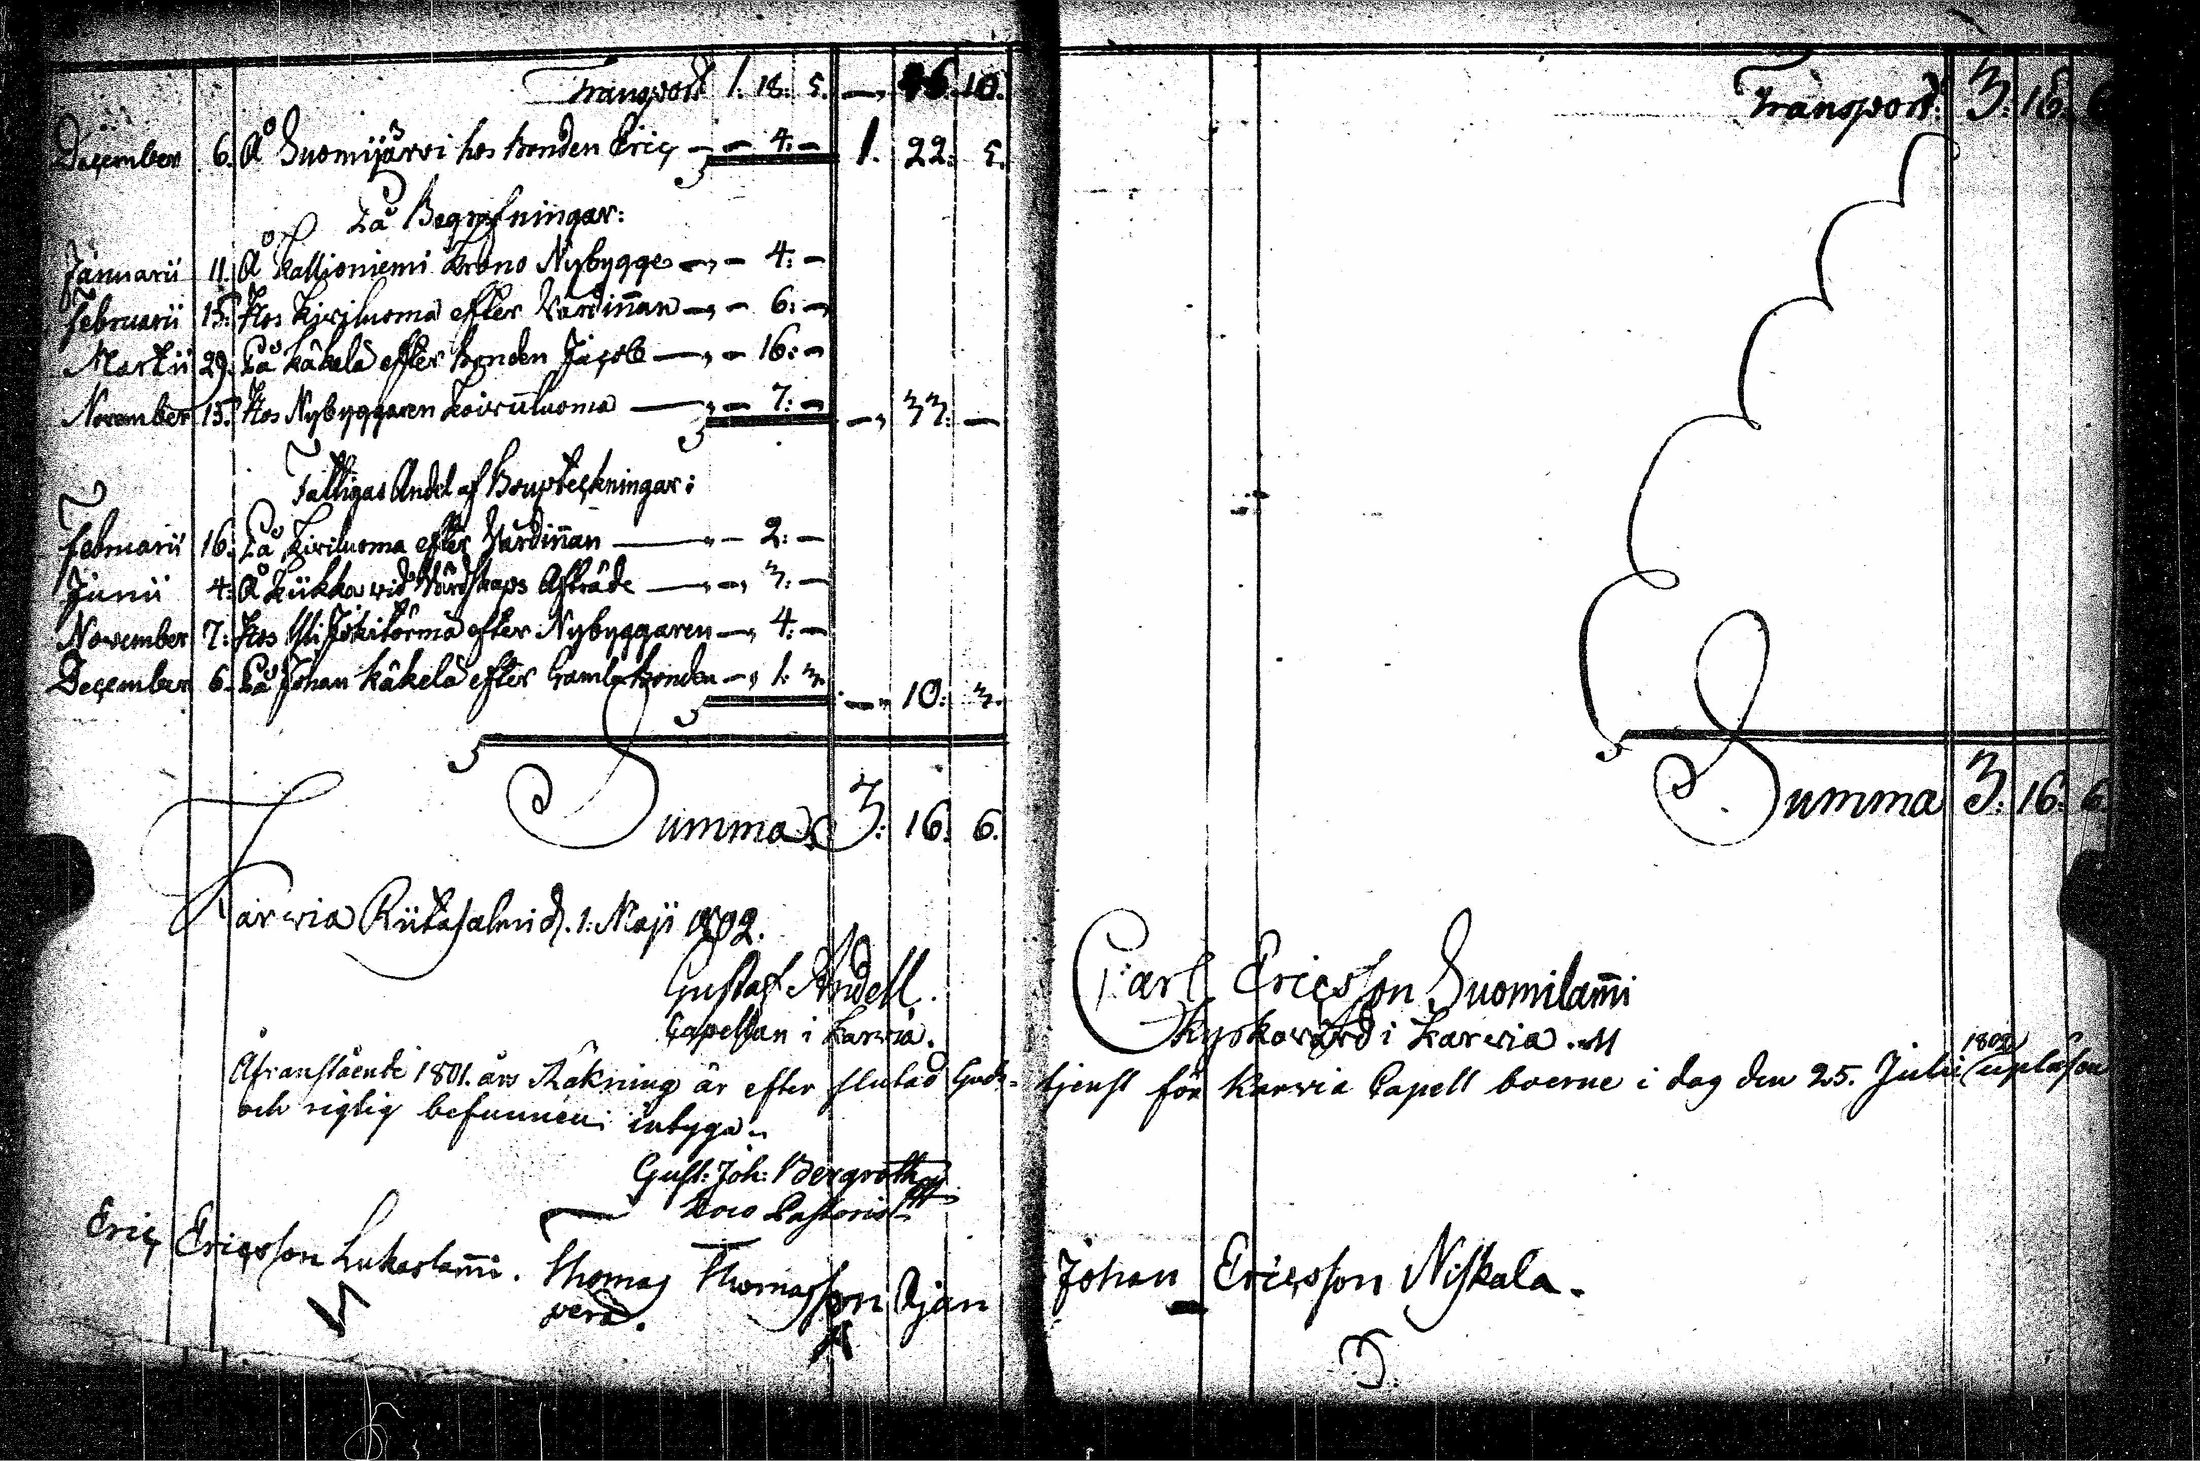 Transport 1. 18: 5. —, 46. 10.
December 6. Å Suomijärvi hos bonden Eric — — 4: — 1. 22: 5.
På Begrafningar:
Januarii 11. Å Kallioniemi Krono Nybygge —, — 4: —
Februarii 15. Hos Kiviluoma efter Värdiñan —, — 6: —
Martii 29. På Käkelä efter bonden Jacob —, — 16: —
November 15. Hos Nybyggaren Koivuluoma —, — 7: — —, 33: —
Fattigas Andel af Bouptekningar:
Februarii 16. På Kiviluoma efter Värdiñan — — 2: —
Junii 4: Å Liikka wid Wärdskaps Afträde —, —, 3: —
November 7: Hos Yli Jokitörmä efter Nybyggaren —, 4: —
December 6. På Johan Käkelä efter Gamla bonden —, 1: 3. —, 10: 3.
Summa 3: 16. 6.
Karwia Riitasalmi d. 1: Maji 1802.
Gustaf Andell.
Capellan i Karwia.
Åfvanstående 1801. års Räkning är efter slutad Guds-
och rigtig befunnen; intyga
Gust: Joh: Bergroth
Loco Pastoris
Eric Ericsson Lukaslam̃i. Thomas Thomasson Ojan
perä.
Transport: 3: 16: 6
Summa 3: 16: 6.
Carl Ericsson Suomilam̃i
Kyrkovärd i Karvia.
tjenst för Karvia Capell boerne i dag den 25. Julii 1802 uplesen
Johan Ericsson Niskala.